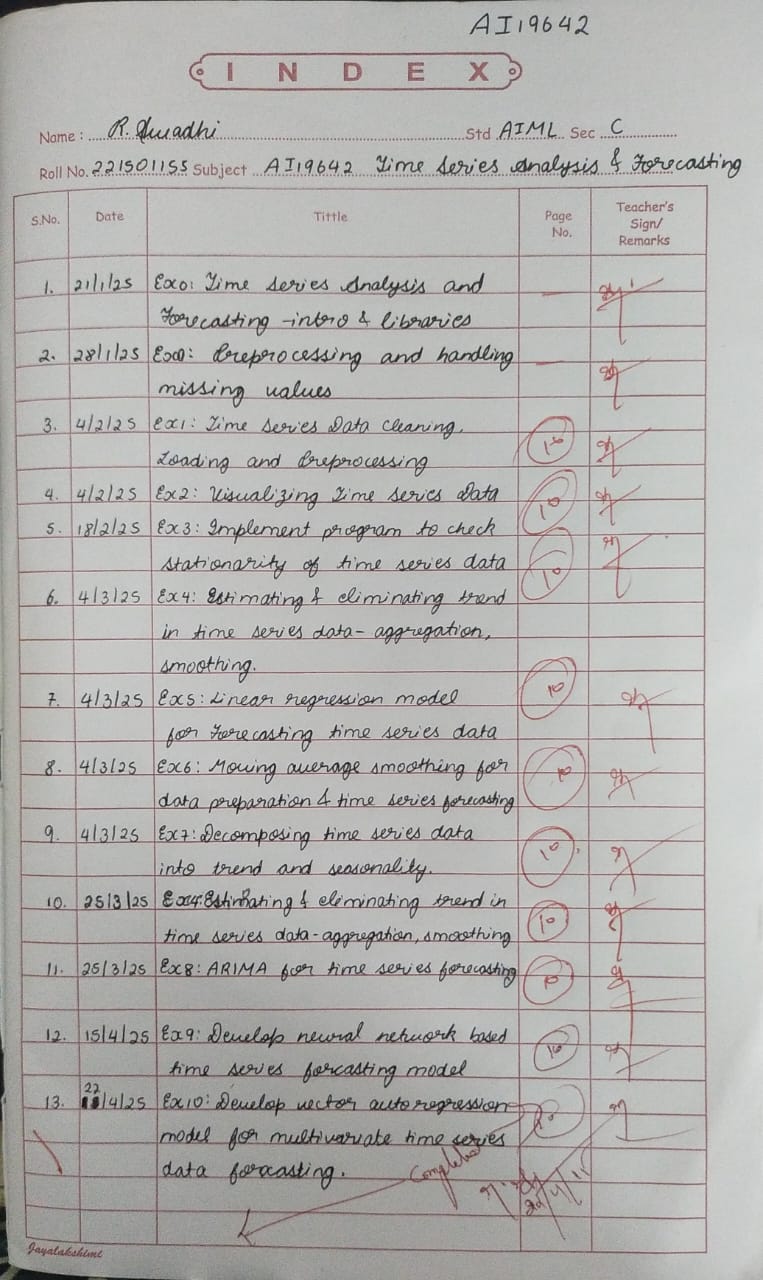 AI19642
INDEX
Name : R. Std AIML Sec C
Roll No. 221501155 Subject AI19642 Time Series Analysis & Forecasting
S.No. Date Tittle Page No. Teacher's Sign/ Remarks
1. 21/1/25 Ex0: Time Series Analysis and —
Forecasting -intro & libraries
2. 28/1/25 Ex0: Preprocessing and handling —
missing values
3. 4/2/25 Ex1: Time Series Data Cleaning, 10
Loading and Preprocessing
4. 4/2/25 Ex2: Visualizing Time Series Data 10
5. 18/2/25 Ex3: Implement program to check
stationarity of time series data 10
6. 4/3/25 Ex4: Estimating & eliminating trend
in time series data- aggregation,
smoothing.
7. 4/3/25 Ex5: Linear regression model 10
for Forecasting time series data
8. 4/3/25 Ex6: Moving average smoothing for 10
data preparation & time series forecasting
9. 4/3/25 Ex7: Decomposing time series data 10
into trend and seasonality.
10. 25/3/25 Ex4: Estimating & eliminating trend in 10
time series data-aggregation, smoothing
11. 25/3/25 Ex8: ARIMA for time series forecasting 10
12. 15/4/25 Ex9: Develop neural network based 10
time series forcasting model
13. 22/4/25 Ex10: Develop vector auto regression 10
model for multivariate time series
data forcasting.
Completed
Jayalakshimi